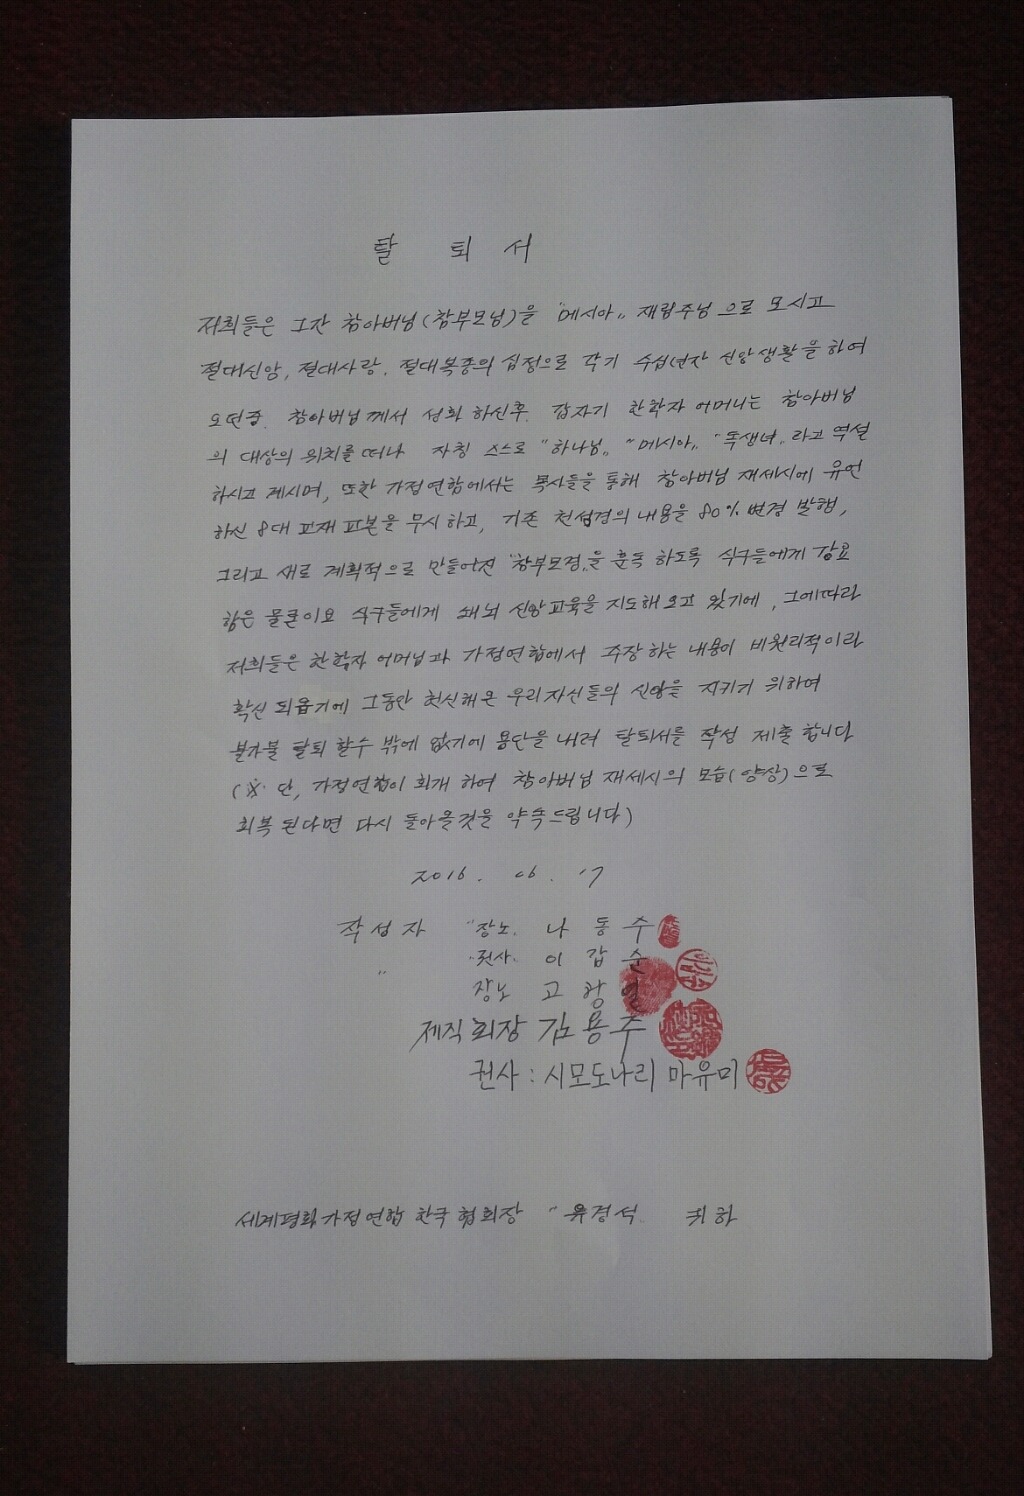 탈 퇴 서
저희들은 그간 참아버님(참부모님)을 "메시아" 재림주님 으로 모시고
절대신앙, 절대사랑, 절대복종의 심정으로 각기 수십년간 신앙생활을 하여
오던중. 참아버님께서 성화 하신후. 갑자기 한학자 어머니는 참아버님
의 대상의 위치를 떠나 자칭 스스로 "하나님" "메시아" "독생녀" 라고 역설
하시고 계시며, 또한 가정연합에서는 목사들을 통해 참아버님 재세시에 유언
하신 8대 교재 교본을 무시하고, 기존 천성경의 내용을 80% 변경 발행,
그리고 새로 계획적으로 만들어진 "참부모경"을 훈독 하도록 식구들에게 강요
함은 물론이요 식구들에게 세뇌 신앙교육을 지도해 오고 있기에, 그에따라
저희들은 한학자 어머님과 가정연합에서 주장하는 내용이 비원리적이라
확신 되옵기에 그동안 헌신해온 우리자신들의 신앙을 지키기 위하여
불가불 탈퇴 할수 밖에 없기에 용단을 내려 탈퇴서를 작성 제출 합니다
(※ 단, 가정연합이 회개 하여 참아버님 재세시의 모습(양상)으로
회복 된다면 다시 돌아올것을 약속드립니다)
2016. 06. 17
작성자 "장노. 나 동 수
" 권사. 이 갑 순
장노 고 창 열
제직회장 김용주
권사 : 시모도나리 마유미
세계평화가정연합 한국 협회장 " 유경석 귀하